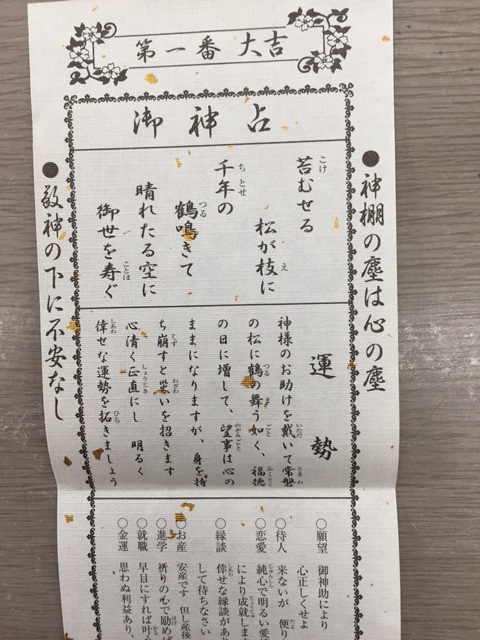 第一番 大吉
御神占
●神棚の塵は心の塵
苔むせる
松が枝に
千年の
鶴鳴きて
晴れたる空に
御世を寿ぐ
運勢
神様のお助けを戴いて常磐
の松に鶴の舞う如く、福徳
の日に増して、望事は心の
ままになりますが、身を持
ち崩すと災いを招きます
心清く正直にし 明るく
倖せな運勢を拓きましょう
○願望 御神助により
心正しくせよ
○待人 来ないが 便り
○恋愛 純心で明るい愛
により成就しま
○縁談 倖せな縁談があ
して待ちなさい
○お産 安産です 但し産後
○進学 祈りの心で励め
○就職 早目にすれば叶う
○金運 思わぬ利益あり、
●敬神の下に不安なし